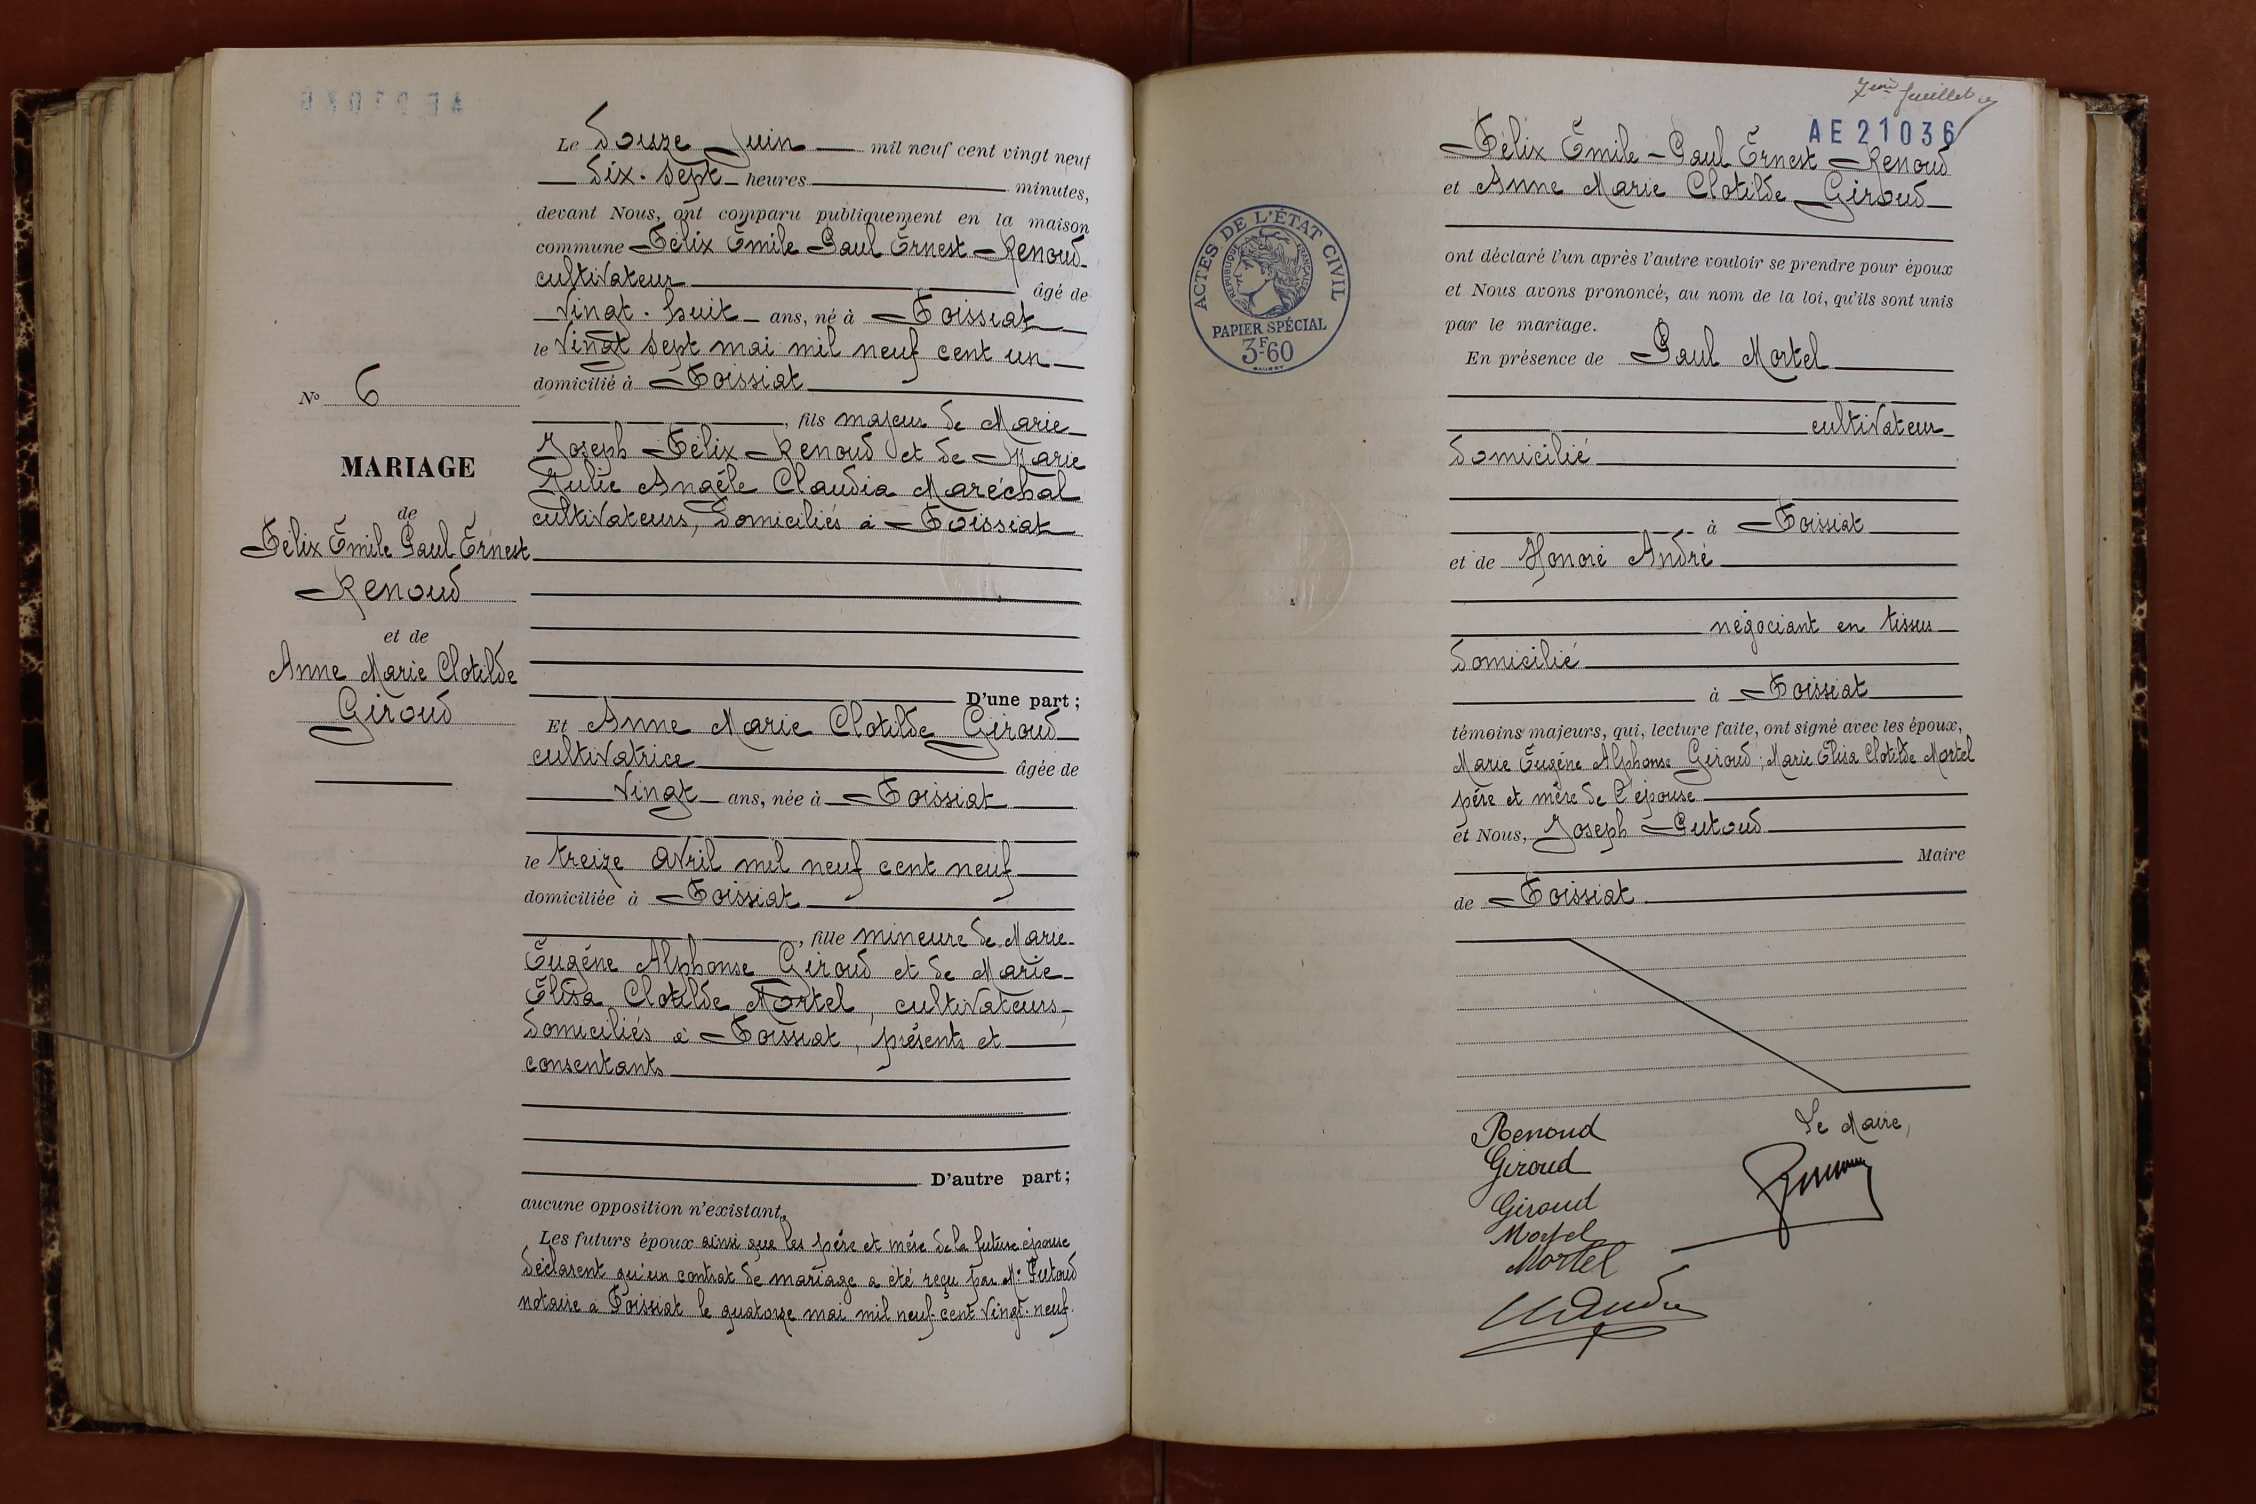 Le Douze Juin mil neuf cent vingt neuf
Dix-Sept heures minutes,
devant Nous, ont comparu publiquement en la maison
commune Félix Emile Paul Ernest Renoud
cultivateur âgé de
Vingt-huit ans, né à Foissiat
le Vingt Sept mai mil neuf cent un
domicilié à Foissiat
, fils majeur de Marie
Joseph Félix Renoud et de Marie
Julie Angéle Claudia Maréchal
cultivateurs, Domiciliés à Foissiat
D'une part;
Et Anne Marie Clotilde Giroud
cultivatrice âgée de
Vingt ans, née à Foissiat
le treize avril mil neuf cent neuf
domiciliée à Foissiat
, fille mineure de Marie
Eugéne Alphonse Giroud et de Marie
Elisa Clotilde Mortel, cultivateurs,
Domiciliés à Foissiat, présents et
consentants
D'autre part;
aucune opposition n'existant.
Les futurs époux ainsi que les pére et mére de la future épouse
déclarent qu'un contrat de mariage a été reçu par Me Putoud
notaire à Foissiat le quatorze mai mil neuf cent vingt-neuf.
No 6
MARIAGE
de
Félix Emile Paul Ernest
Renoud
et de
Anne Marie Clotilde
Giroud
7eme feuillet
AE 21036
Félix Emile Paul Ernest Renoud
et Anne Marie Clotilde Giroud
ACTES DE L'ÉTAT CIVIL
RÉPUBLIQUE FRANÇAISE
PAPIER SPÉCIAL
3F60
ont déclaré l'un après l'autre vouloir se prendre pour époux
et Nous avons prononcé, au nom de la loi, qu'ils sont unis
par le mariage.
En présence de Paul Mortel
cultivateur
Domicilié
à Foissiat
et de Honoré André
négociant en tissus
Domicilié
à Foissiat
témoins majeurs, qui, lecture faite, ont signé avec les époux,
Marie Eugéne Alphonse Giroud; Marie Elisa Clotilde Mortel
pére et mére de l'épouse
et Nous, Joseph Putoud
Maire
de Foissiat
Renoud
Giroud
Giroud
Mortel
Mortel
Le Maire,